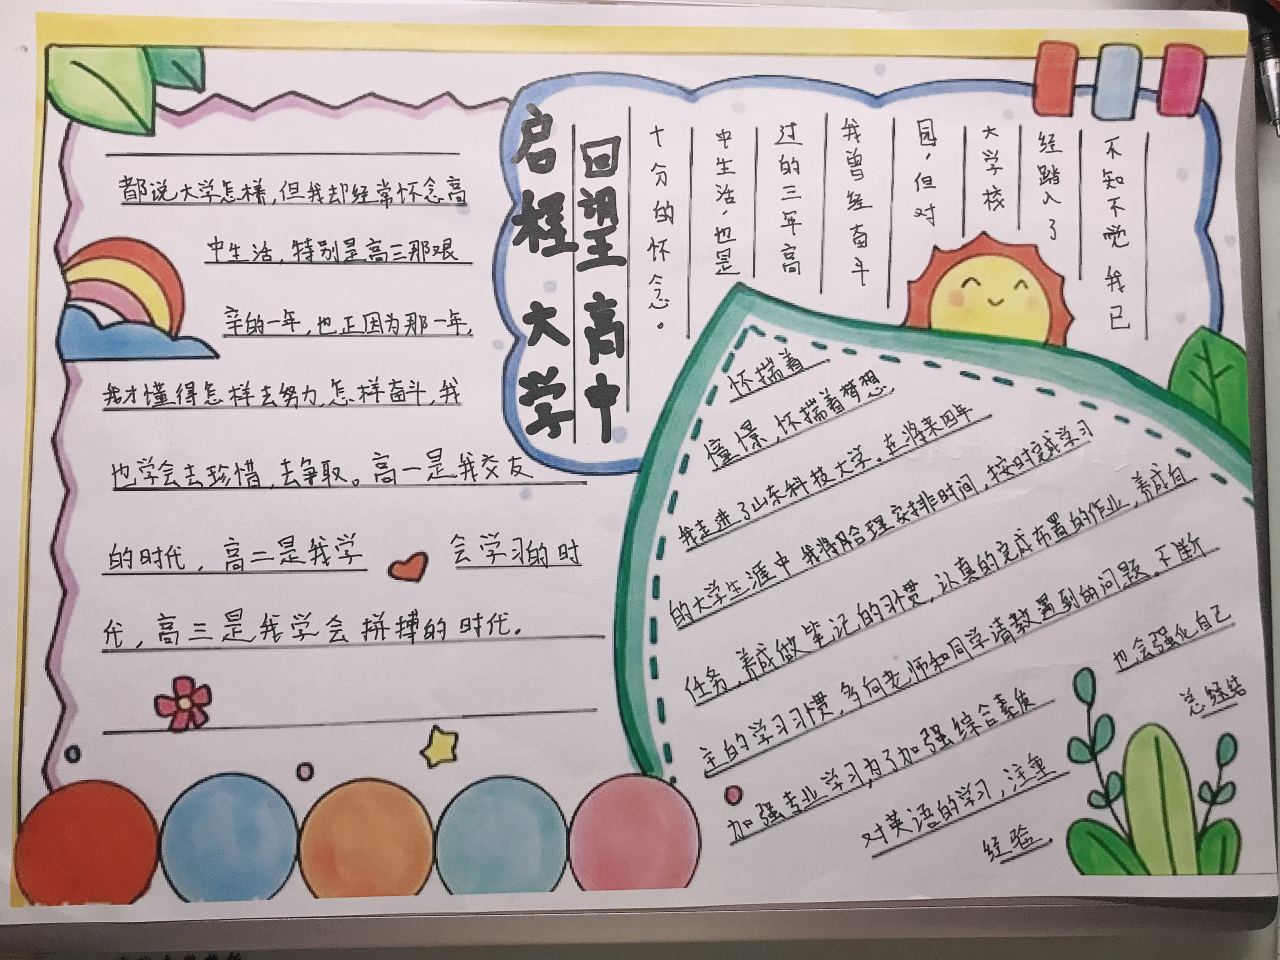 回望高中
启程大学
不知不觉我已
经踏入了
大学校
园，但对
我曾经奋斗
过的三年高
中生活，也是
十分的怀念。
都说大学怎样，但我却经常怀念高
中生活，特别是高三那艰
辛的一年，也正因为那一年，
我才懂得怎样去努力，怎样奋斗，我
也学会去珍惜，去争取。高一是我交友
的时代，高二是我学会学习的时
代，高三是我学会拼搏的时代。
怀揣着
憧憬，怀揣着梦想
我走进了山东科技大学。在将来四年
的大学生涯中我将用合理安排时间，按时完成学习
任务，养成做笔记的习惯，认真的完成布置的作业，养成自
主的学习习惯，多向老师和同学请教遇到的问题。不断
加强专业学习，为了加强综合素质 也会强化自己
对英语的学习，注重 总结
经验。